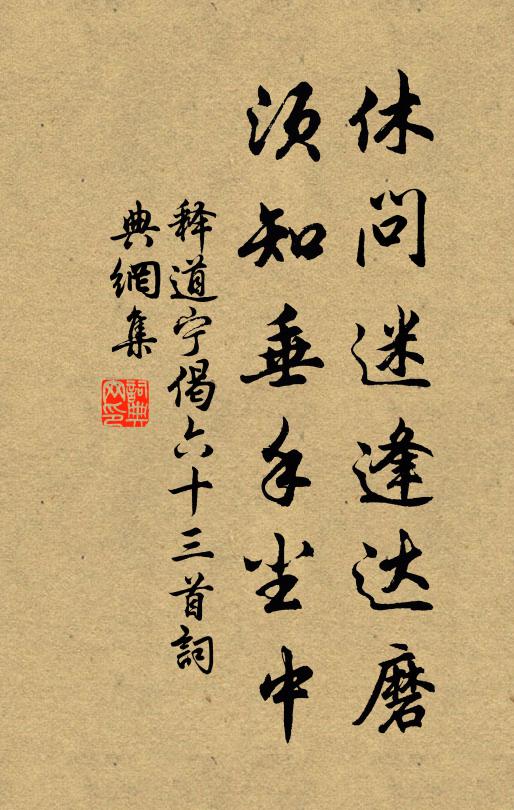 休问迷逢达磨
须知垂手尘中
释道宁偈六十三首詞
典網集
詞典网印